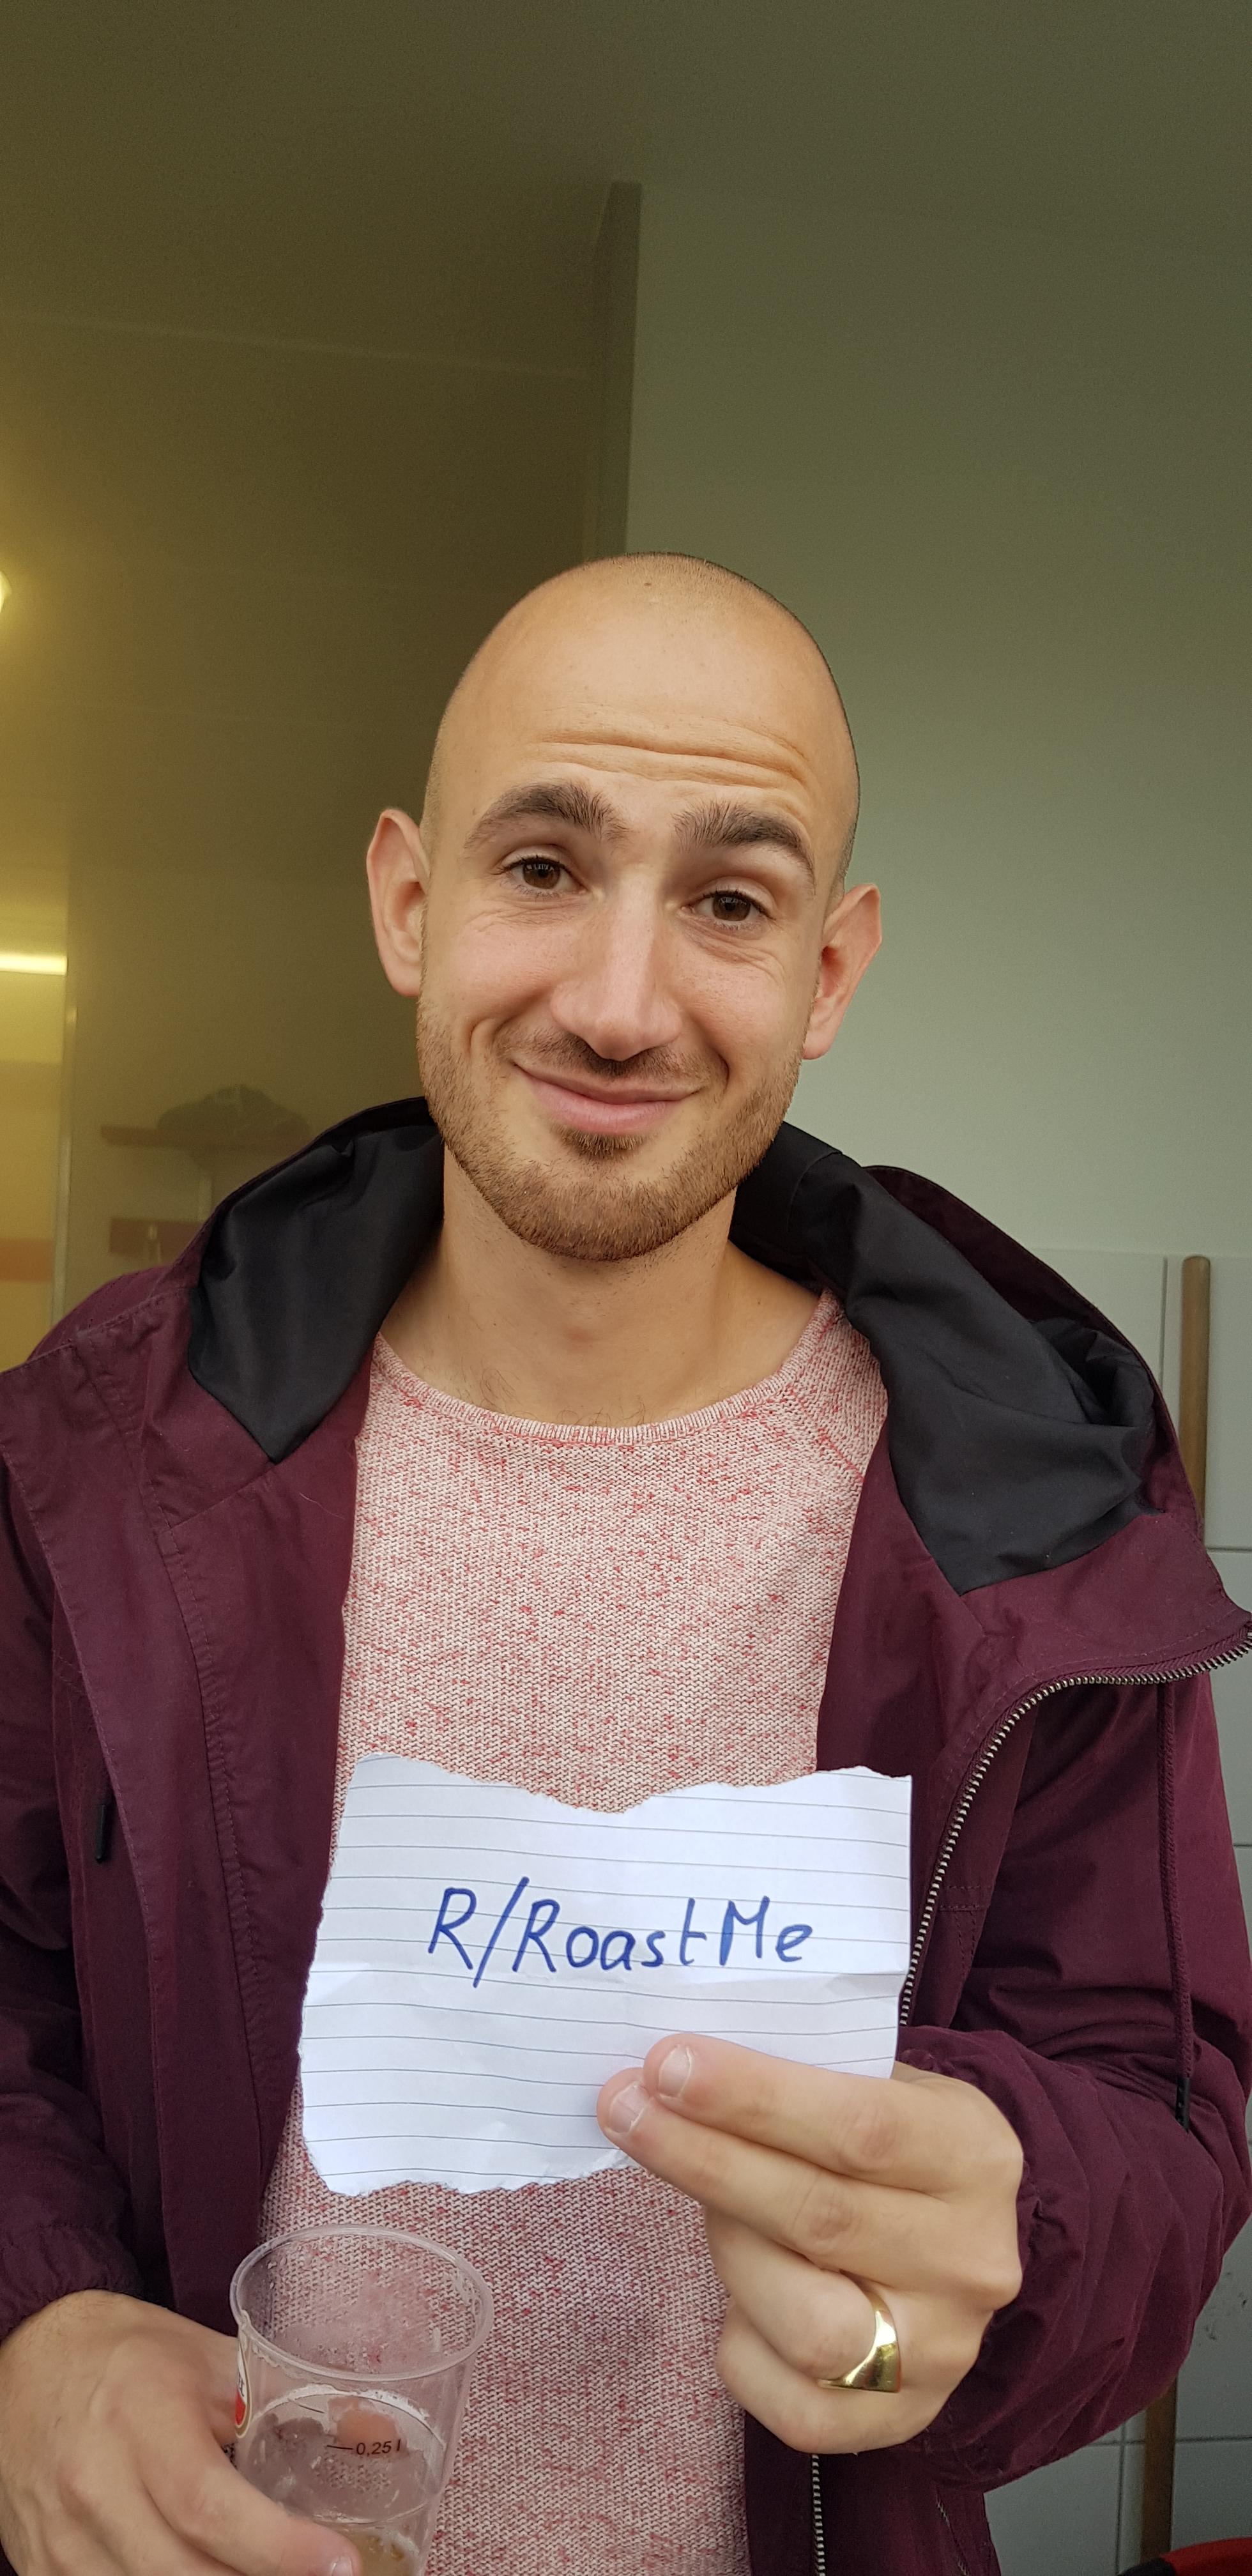 R/RoastMe
0,25 l